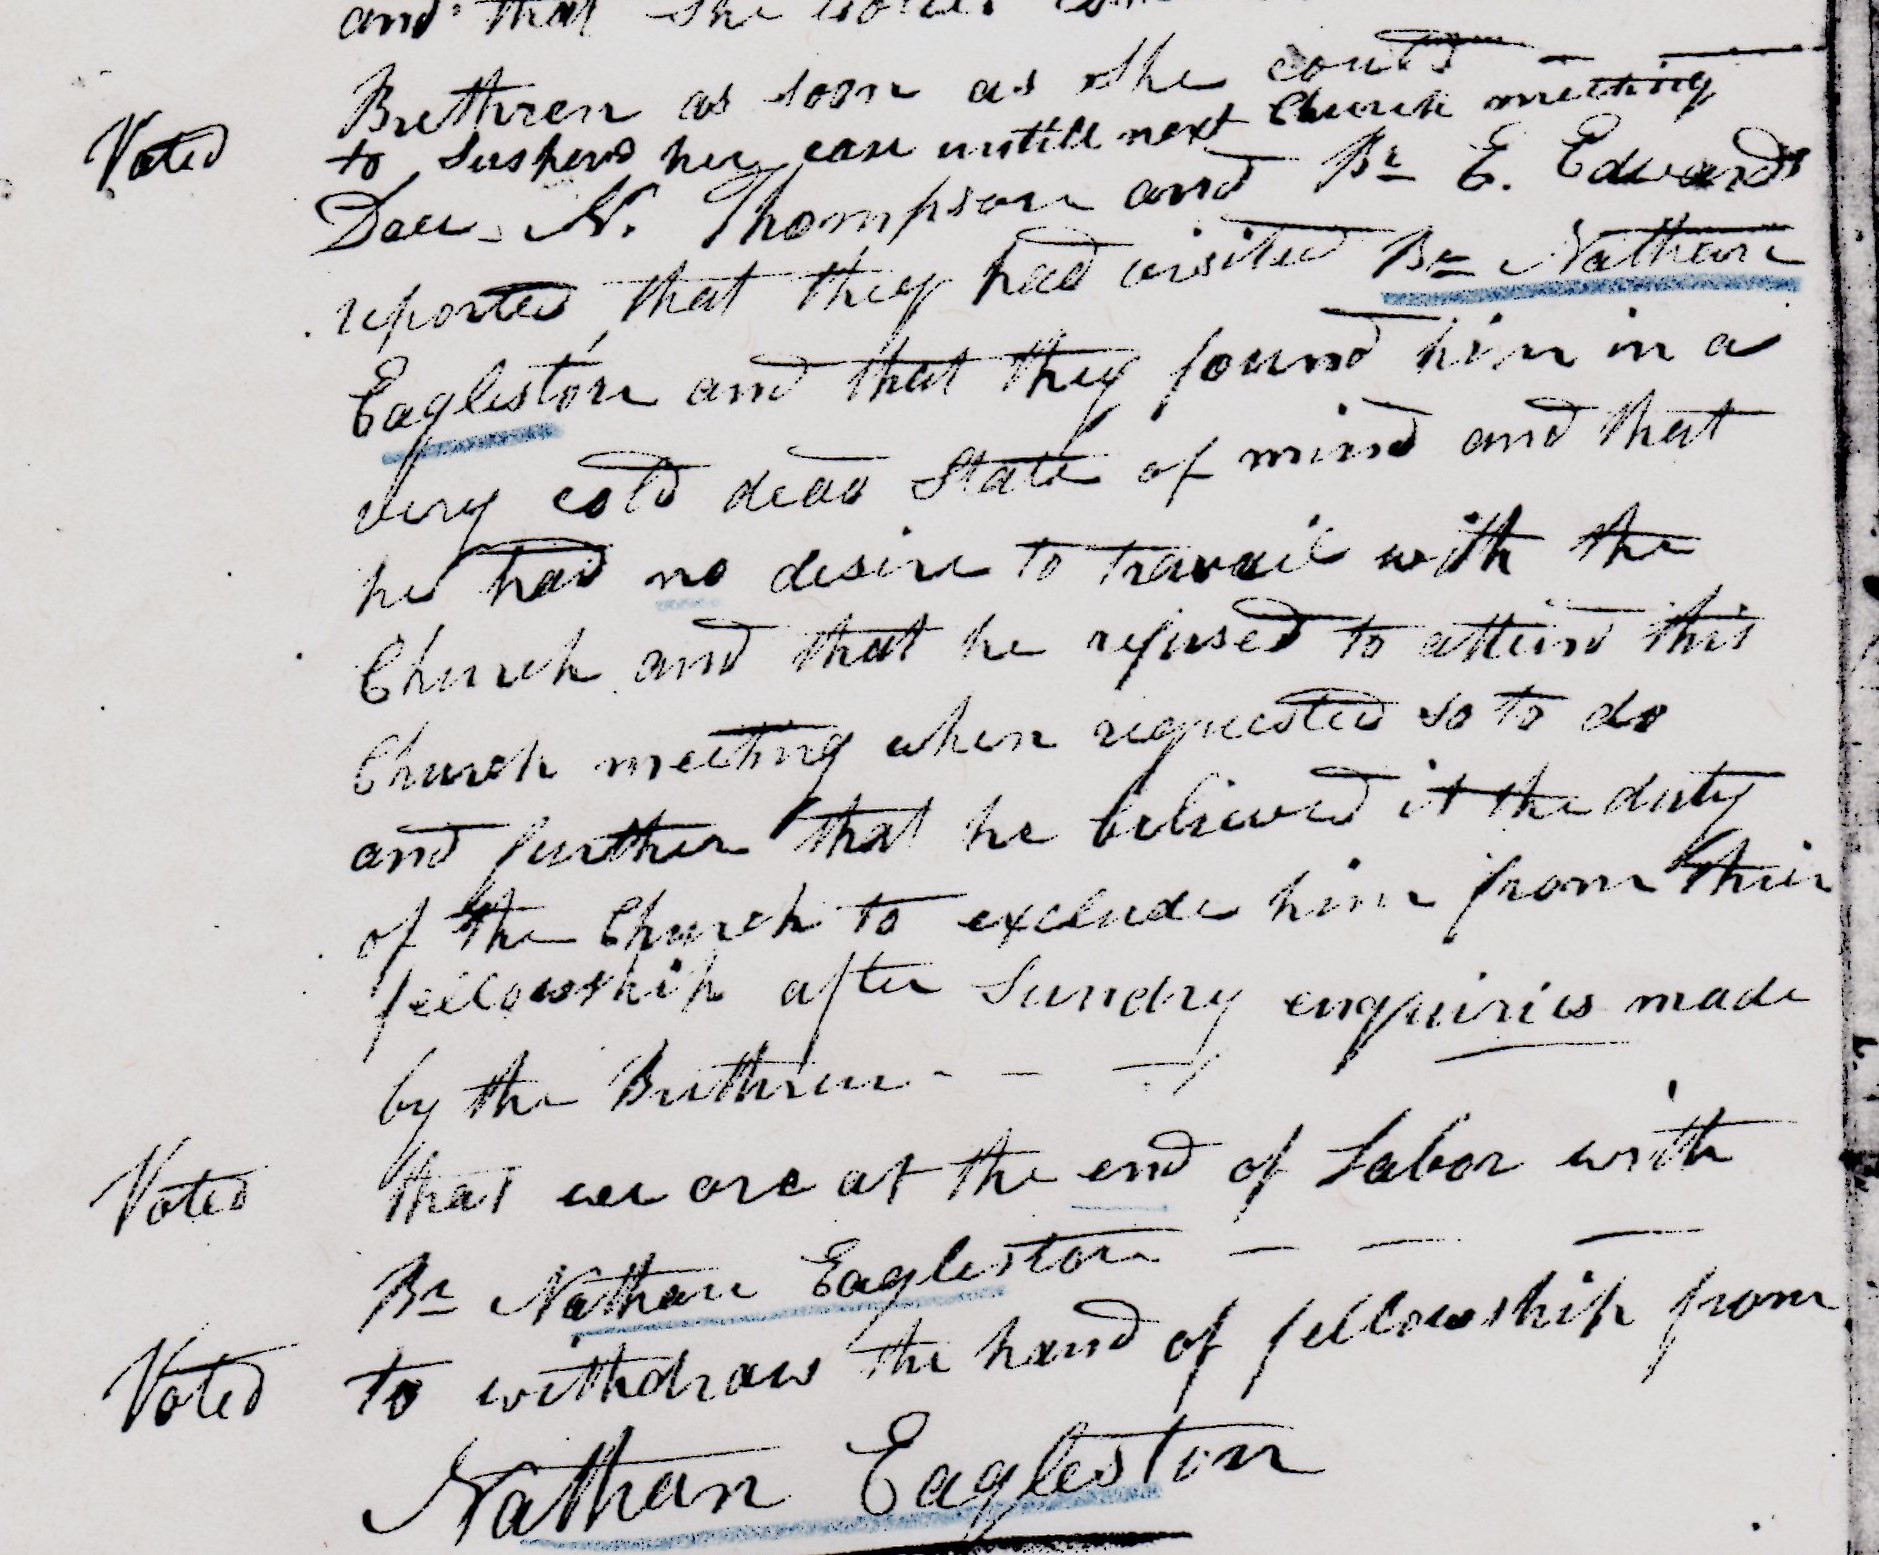 and that She would come
Brethren as soon as She could
Voted to Suspend her case untill next Church meeting
Deac N. Thompson and Br E. Edwards
reported that they had visited Br Nathan
Eagleston and that they found him in a
very cold dead State of mind and that
he had no desire to travail with the
Church and that he refused to attend this
Church meeting when requested so to do
and further that he believed it the duty
of the Church to exclude him from their
fellowship after Sundry enquiries made
by the Brethren - - -
Voted that we are at the end of Labor with
Br Nathan Eagleston - - -
Voted to withdraw the hand of fellowship from
Nathan Eagleston